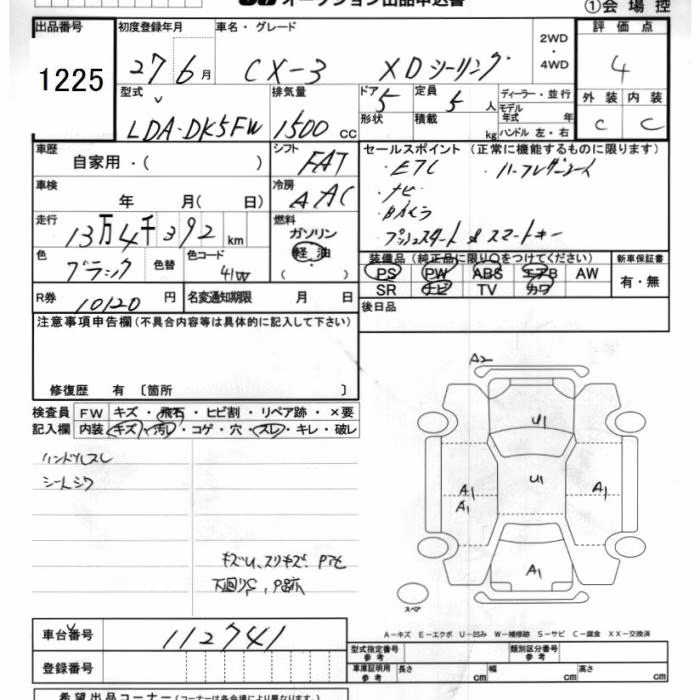 オークション出品申込書
①会場控
出品番号 初度登録年月 車名・グレード 2WD・4WD 評価点
1225 27 6月 CX-3 XDツーリング 4
型式 排気量 ドア 5 定員 5人 ディーラー・並行
モデル年式 年
LDA-DK5FW 1500 cc 形状 積載 kg ハンドル 左・右
外装 内装
C C
車歴 自家用・( ) シフト FAT
セールスポイント (正常に機能するものに限ります)
・ETC ・ハーフレザーシート
・ナビ
・Bカメラ
・プッシュスタート & スマートキー
車検 年 月(日) 冷房 AAC
走行 13万4千392 km 燃料 ガソリン 軽油 ( ・ )
色 ブラック 色替 色コード 41W
装備品 (純正品に限り○をつけてください) 新車保証書
PS PW ABS エアB AW 有・無
SR ナビ TV カワ
R券 10120 円 名変通知期限 月 日 後日品
注意事項申告欄 (不具合内容等は具体的に記入して下さい)
修復歴 有 〔箇所 〕
検査員記入欄 FW キズ・飛石・ヒビ割・リペア跡・×要
内装 キズ・汚れ・コゲ・穴・スレ・キレ・破レ
ハンドルスレ
シートシワ
キズU、スリキズ、Pアセ
下回りS、P跡
A2
U1
U1
A1
A1
A1
A1
スペア
A-キズ E-エクボ U-凹み W-補修跡 S-サビ C-腐食 XX-交換済
車台番号 112741
型式指定番号 参考 類別区分番号 参考
登録番号
車庫証明用 参考 長さ cm 幅 cm 高さ cm
希望出品コーナー (コーナーは各会場により異なります。)